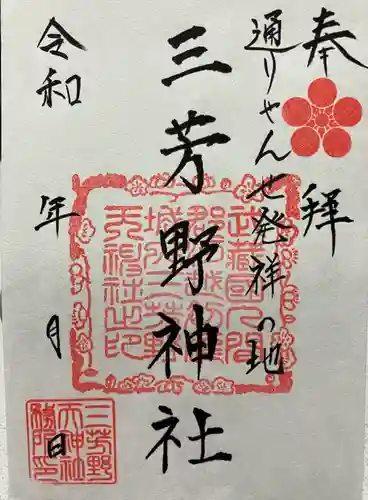 奉拝
通りゃんせ発祥の地
三芳野神社
令和 年 月 日
武蔵国入間
郡河越
城内三芳野
天神社之印
三芳野
天神社